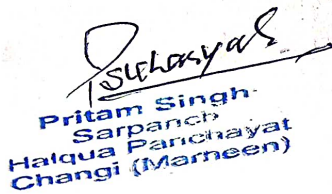 Pritam Singh
Sarpanch
Halqua Panchayat
Changi (Marneen)